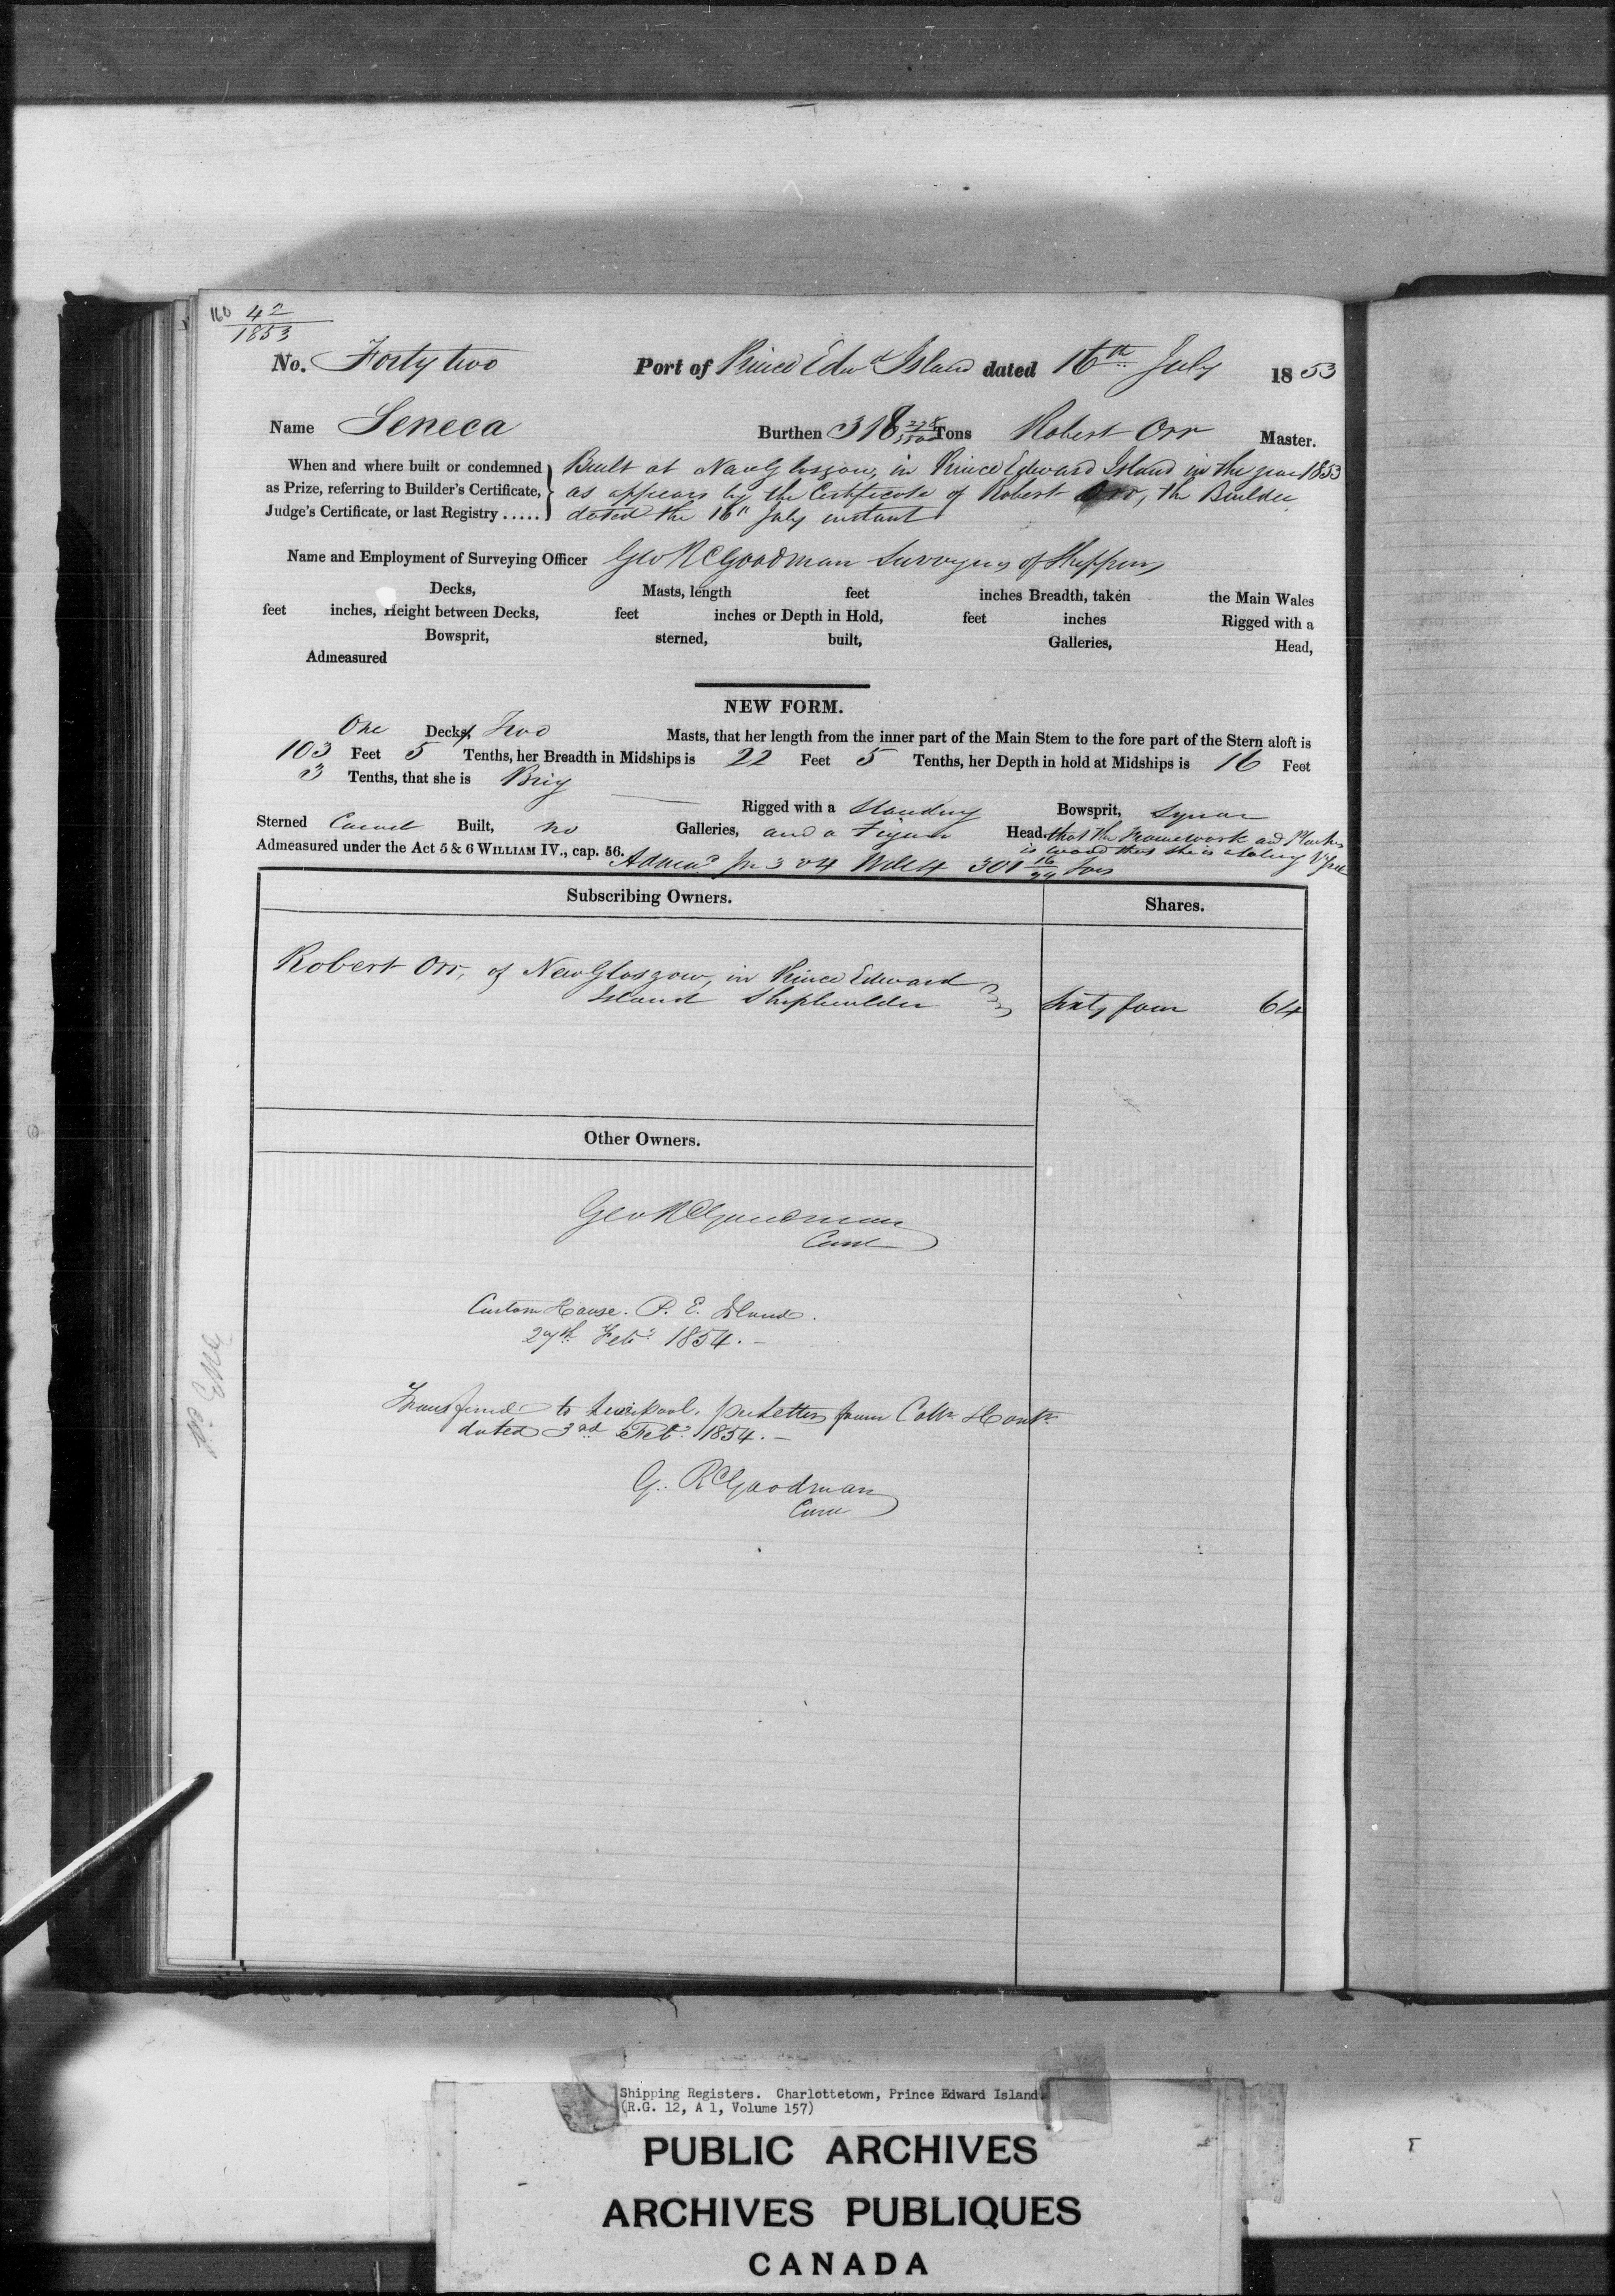 160 42
1853
No. Forty two Port of Prince Edwd Island dated 16th July 1853
Name Seneca Burthen 318 Tons Robert Orr Master.
When and where built or condemned as Prize, referring to Builder's Certificate, Judge's Certificate, or last Registry .....
Built at New Glasgow, in Prince Edward Island in the year 1853
as appears by the Certificate of Robert Orr, the Builder
dated the 16th July instant
Name and Employment of Surveying Officer Geo R Goodman Surveyor of Shipping
Decks, Masts, length feet inches Breadth, taken the Main Wales
feet inches, Height between Decks, feet inches or Depth in Hold, feet inches Rigged with a
Bowsprit, sterned, built, Galleries, Head,
Admeasured
NEW FORM.
One Decks, Two Masts, that her length from the inner part of the Main Stem to the fore part of the Stern aloft is
103 Feet 5 Tenths, her Breadth in Midships is 22 Feet 5 Tenths, her Depth in hold at Midships is 16 Feet
3 Tenths, that she is Brig
Rigged with a Standing Bowsprit, Square
Sterned Carvel Built, no Galleries, and a Figure Head, that the Framework and Planking
is wood that she is a Sailing Vessel
Admeasured under the Act 5 & 6 WILLIAM IV., cap. 56. 301 16/94 Tons
Subscribing Owners. Shares.
Robert Orr, of New Glasgow, in Prince Edward
Island Shipbuilder Sixty four 64
Other Owners.
Geo R Goodman
Custom House. P. E. Island.
27th Feby 1854.-
Transferred to Liverpool. per Letter from Collr & Contr
dated 3rd Feby 1854.-
G. R Goodman
Shipping Registers. Charlottetown, Prince Edward Island
(R.G. 12, A 1, Volume 157)
PUBLIC ARCHIVES
ARCHIVES PUBLIQUES
CANADA